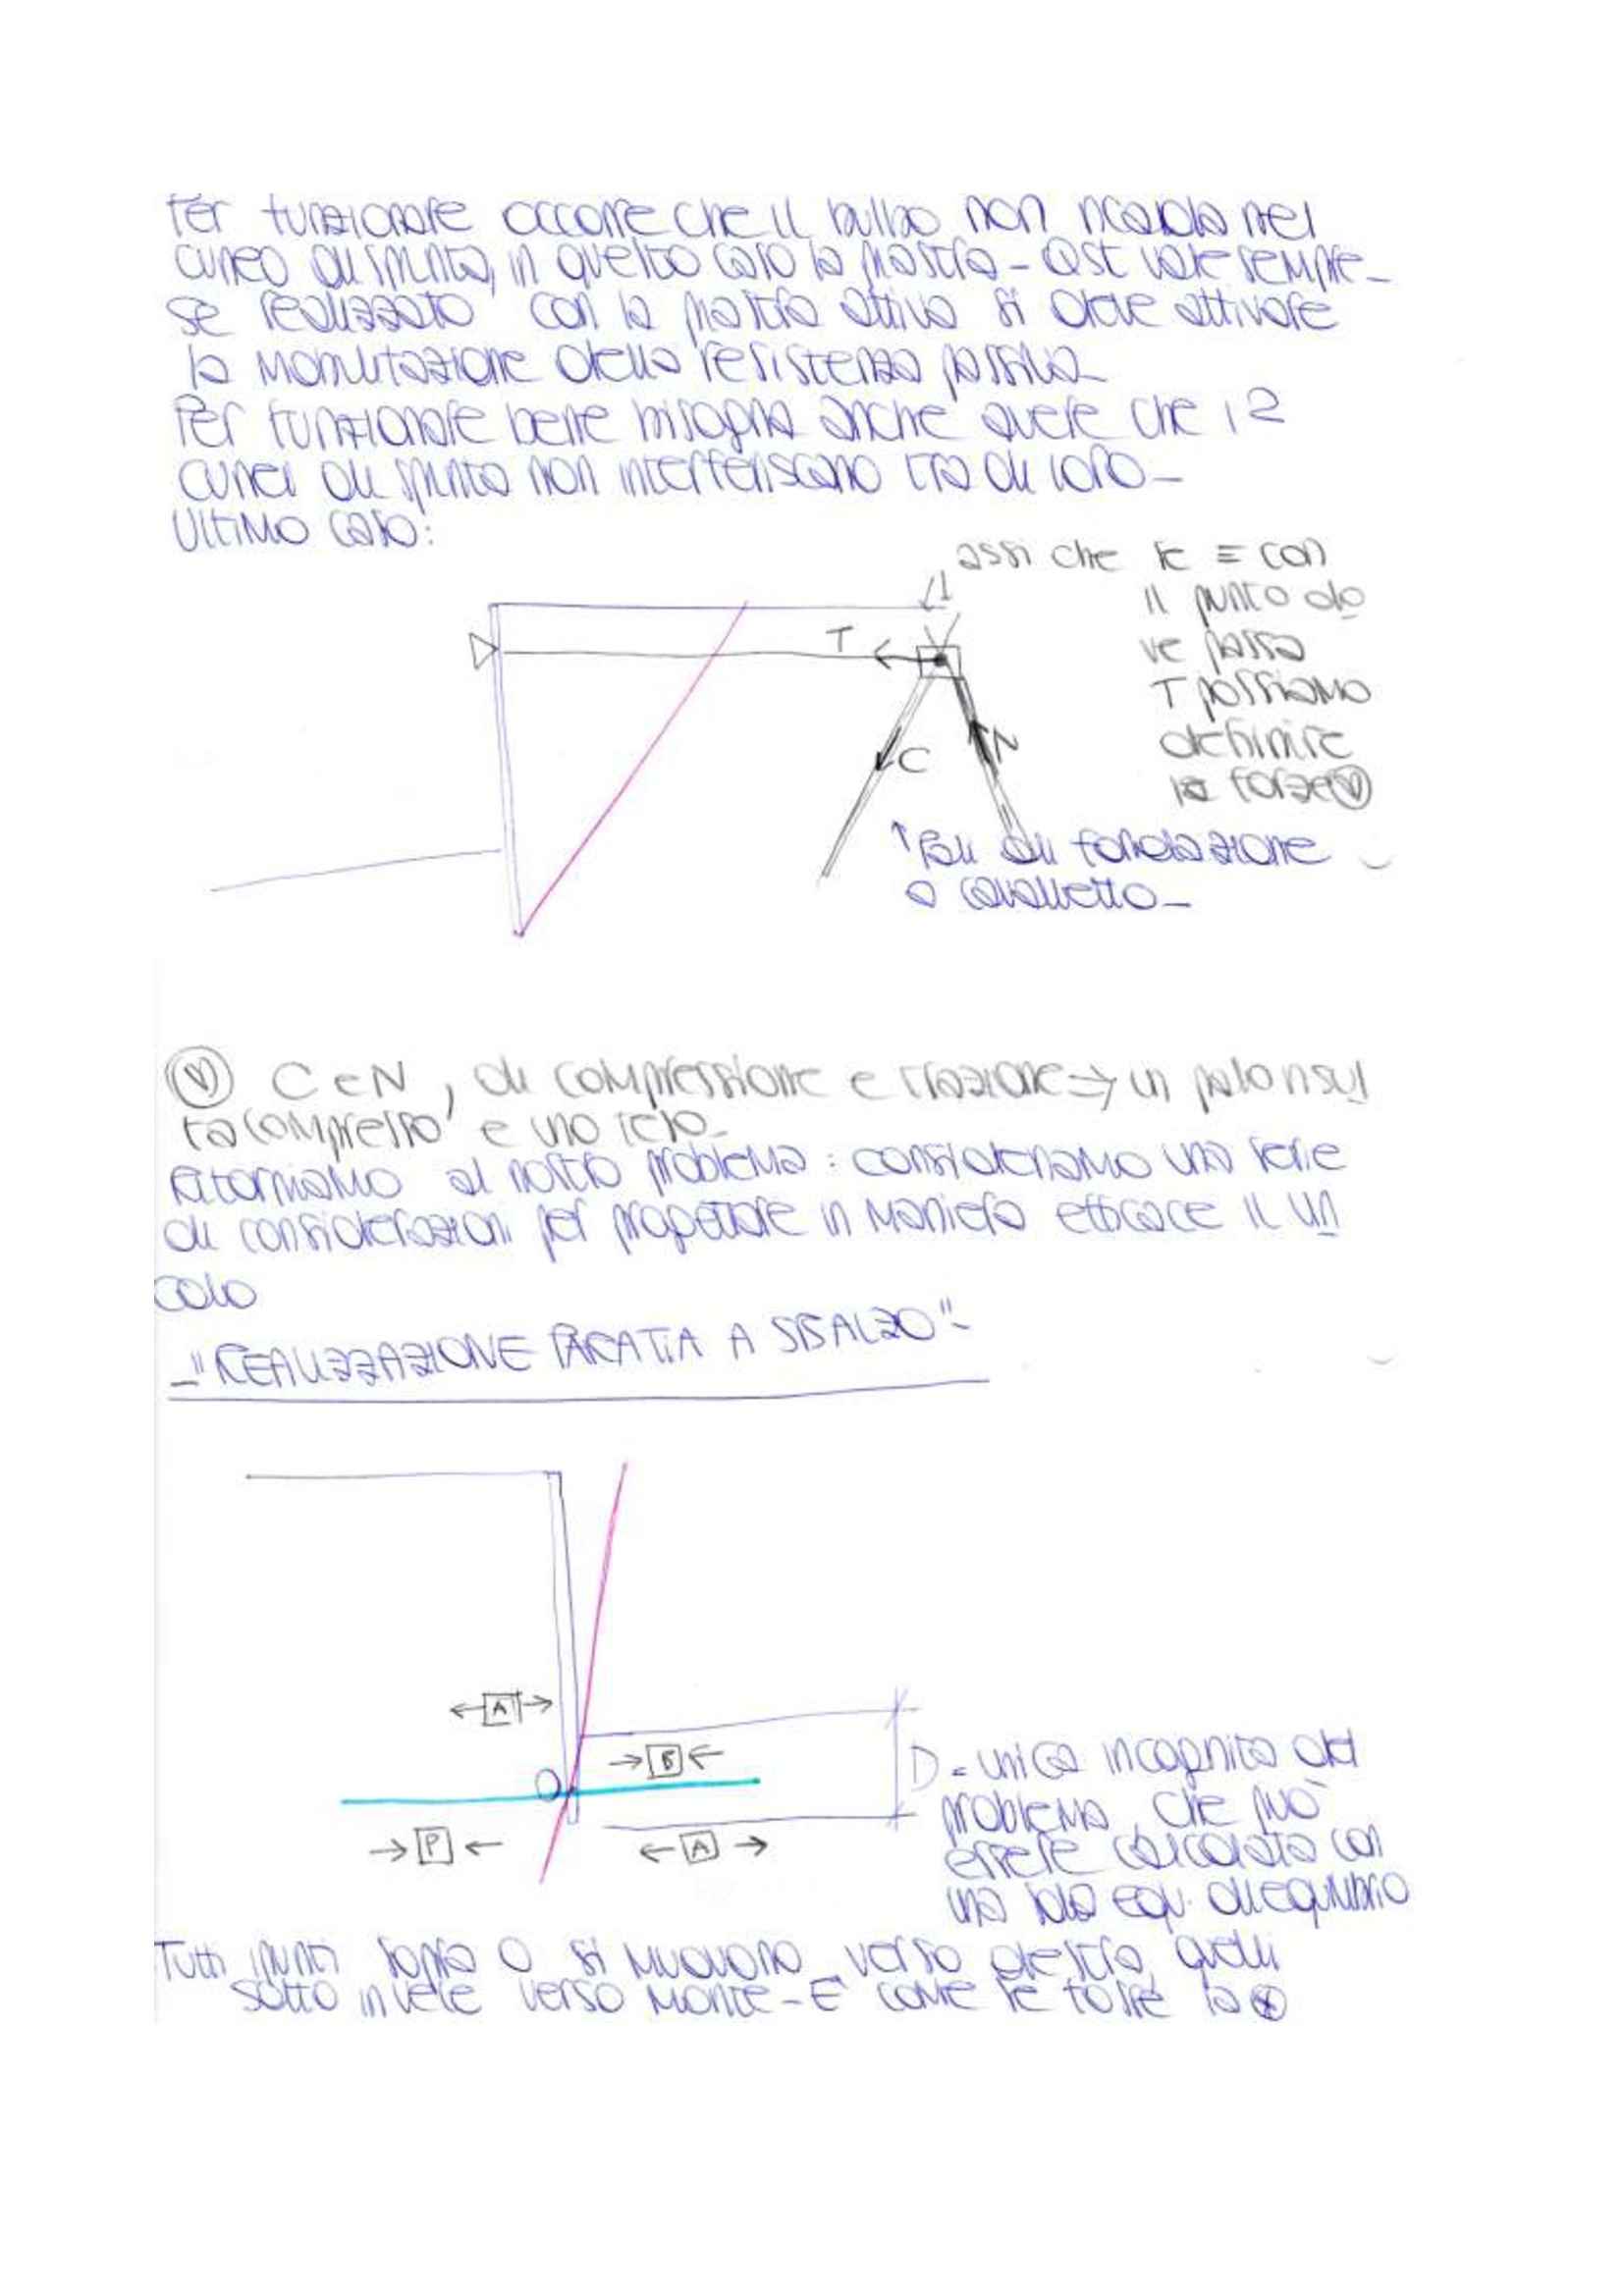 Per funzionare occorre che il bulbo non ricada nel
cuneo di spinta, in questo caso la piastra - Qst vale sempre -
se realizzato con la piastra attiva si deve attivare
la mobilitazione della resistenza passiva -
Per funzionare bene bisogna anche avere che i 2
cunei di spinta non interferiscano tra di loro -
Ultimo caso:
assi che se ≡ con
il punto do
ve passa
T possiamo
definire
le forze Ⓥ
T
C
N
↑ Pali di fondazione
a cavalletto -
Ⓥ C e N, di compressione e trazione ⇒ un palo risul
ta compresso e uno teso -
Ritorniamo al nostro problema: consideriamo una serie
di considerazioni per progettare in maniera efficace il vin
colo
- "REALIZZAZIONE PARATIA A SBALZO" -
← A →
→ B ←
O
→ P ←
← A →
D = unica incognita del
problema, che può
essere calcolata con
una sola equ. di equilibrio
Tutti i punti sopra O si muovono verso destra, quelli
sotto invece verso monte - E' come se fosse la ⊗